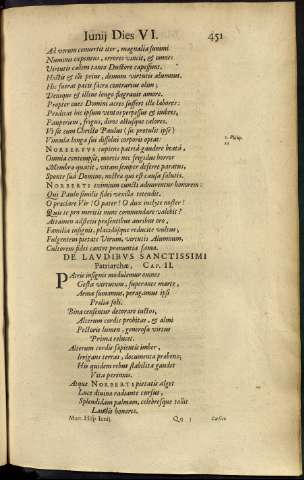 Iunij Dies VI. 451
Ad verum convertit iter, magnalia summi
Numinis exponens, errores vincit, & omnes
Virtutis callem tanto Ductore capessunt.
Hostis & ille prius, demum virtutis alumnus.
Hic fuerat pacis sacra contrarius olim,
Denique & illius longè flagravit amore.
Propter oues Domini acres suffert ille labores:
Prædicat hic ipsum ventos perpessus & imbres,
Pauperiem, frigus, diros altusque calores.
Vt sic cum Christo Paulus (se protulit ipse)
Vincula longa sui dissolvi corporis optat
1. Philip.
23
NORBERTVS cupiens patriâ gaudere beatâ,
Omnia contempsit, mortis nec frigidus horror
Membra quatit, vitam semper deserre paratus,
Sponte suâ Domino, nostra qui est causa salutis.
NORBERTO eximium cuncti advertite honorem:
Qui Paulo similis fidei vexilla tetendit.
O præclare Vir! O pater! O dux inclyte noster!
Quis te pro meritis nunc commendare valebit?
Attamen adsistens præsentibus auribus oro,
Familiæ insignis, placidosque reducite vultus,
Fulgentem pietate Virum, virtutis Alumnum,
Cultorem fidei cantet pronuntia fama.
DE LAVDIBVS SANCTISSIMI
Patriarchæ, CAP. II.
PAtris insignis modulemur omnes
Gesta virtutum, superanus martè,
Arma sumamus, peragamus ipsi
Prælia soli.
Bina censentur decorare iustos,
Alterum cordis probitas, & almi
Pectoris lumen, generosa virtus
Prima relucet.
Alterum cordis sapientis imber,
Irrigans terras, documenta præbens;
His quidem rebus stabilita gaudet
Vita perennis.
Atque NORBERTS pietatis alget
Luce divina radiante cursus,
Splendidam palmam, celebresque tollit
Laudis honores.
Mart. Hisp. Iunij. Qq 2 Casica